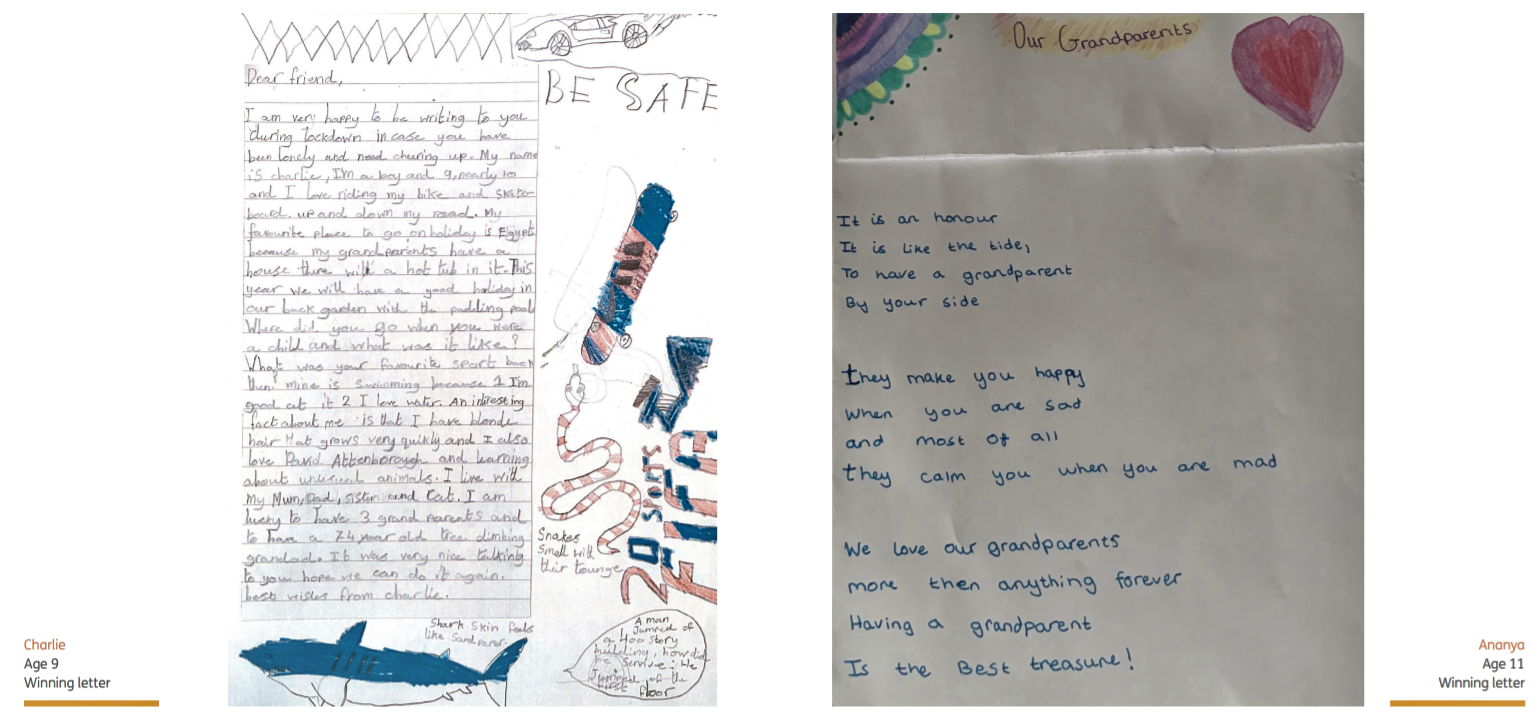 BE SAFE
Dear friend,
I am very happy to be writing to you
during lockdown incase you have
been lonely and need cheering up. My name
is charlie, I'm a boy and 9, nearly 10
and I love riding my bike and skate-
board. up and down my road. My
favourite place to go on holiday is Egypt
because my grandparents have a
house there with a hot tub in it. This
year we will have a good holiday in
our back garden with the paddling pool
Where did you go when you were
a child and what was it like?
What was your favourite sport back
then? mine is swimming because 1 I'm
good at it 2 I love water. An intresting
fact about me is that I have blonde
hair that grows very quikly and I also
love David Attenborough and learning
about unusual animals. I live with
my Mum, Dad, sister and Cat. I am
lucky to have 3 grand parents and
to have a 74 year old tree climbing
grandad. It was very nice talking
to you hope we can do it again.
best wishes from charlie.
Snakes
smell with
thir tounge
20 SPORTS
FIFA
Shark skin feels
like Sandpaper.
A man
Jumped of
a 400 story
building, how did
he servive: He
Jumped of the
first floor
Charlie
Age 9
Winning letter
Our Grandparents
It is an honour
It is like the tide,
To have a grandparent
By your side
they make you happy
when you are sad
and most of all
they calm you when you are mad
We love our grandparents
more then anything forever
Having a grandparent
Is the Best treasure!
Ananya
Age 11
Winning letter